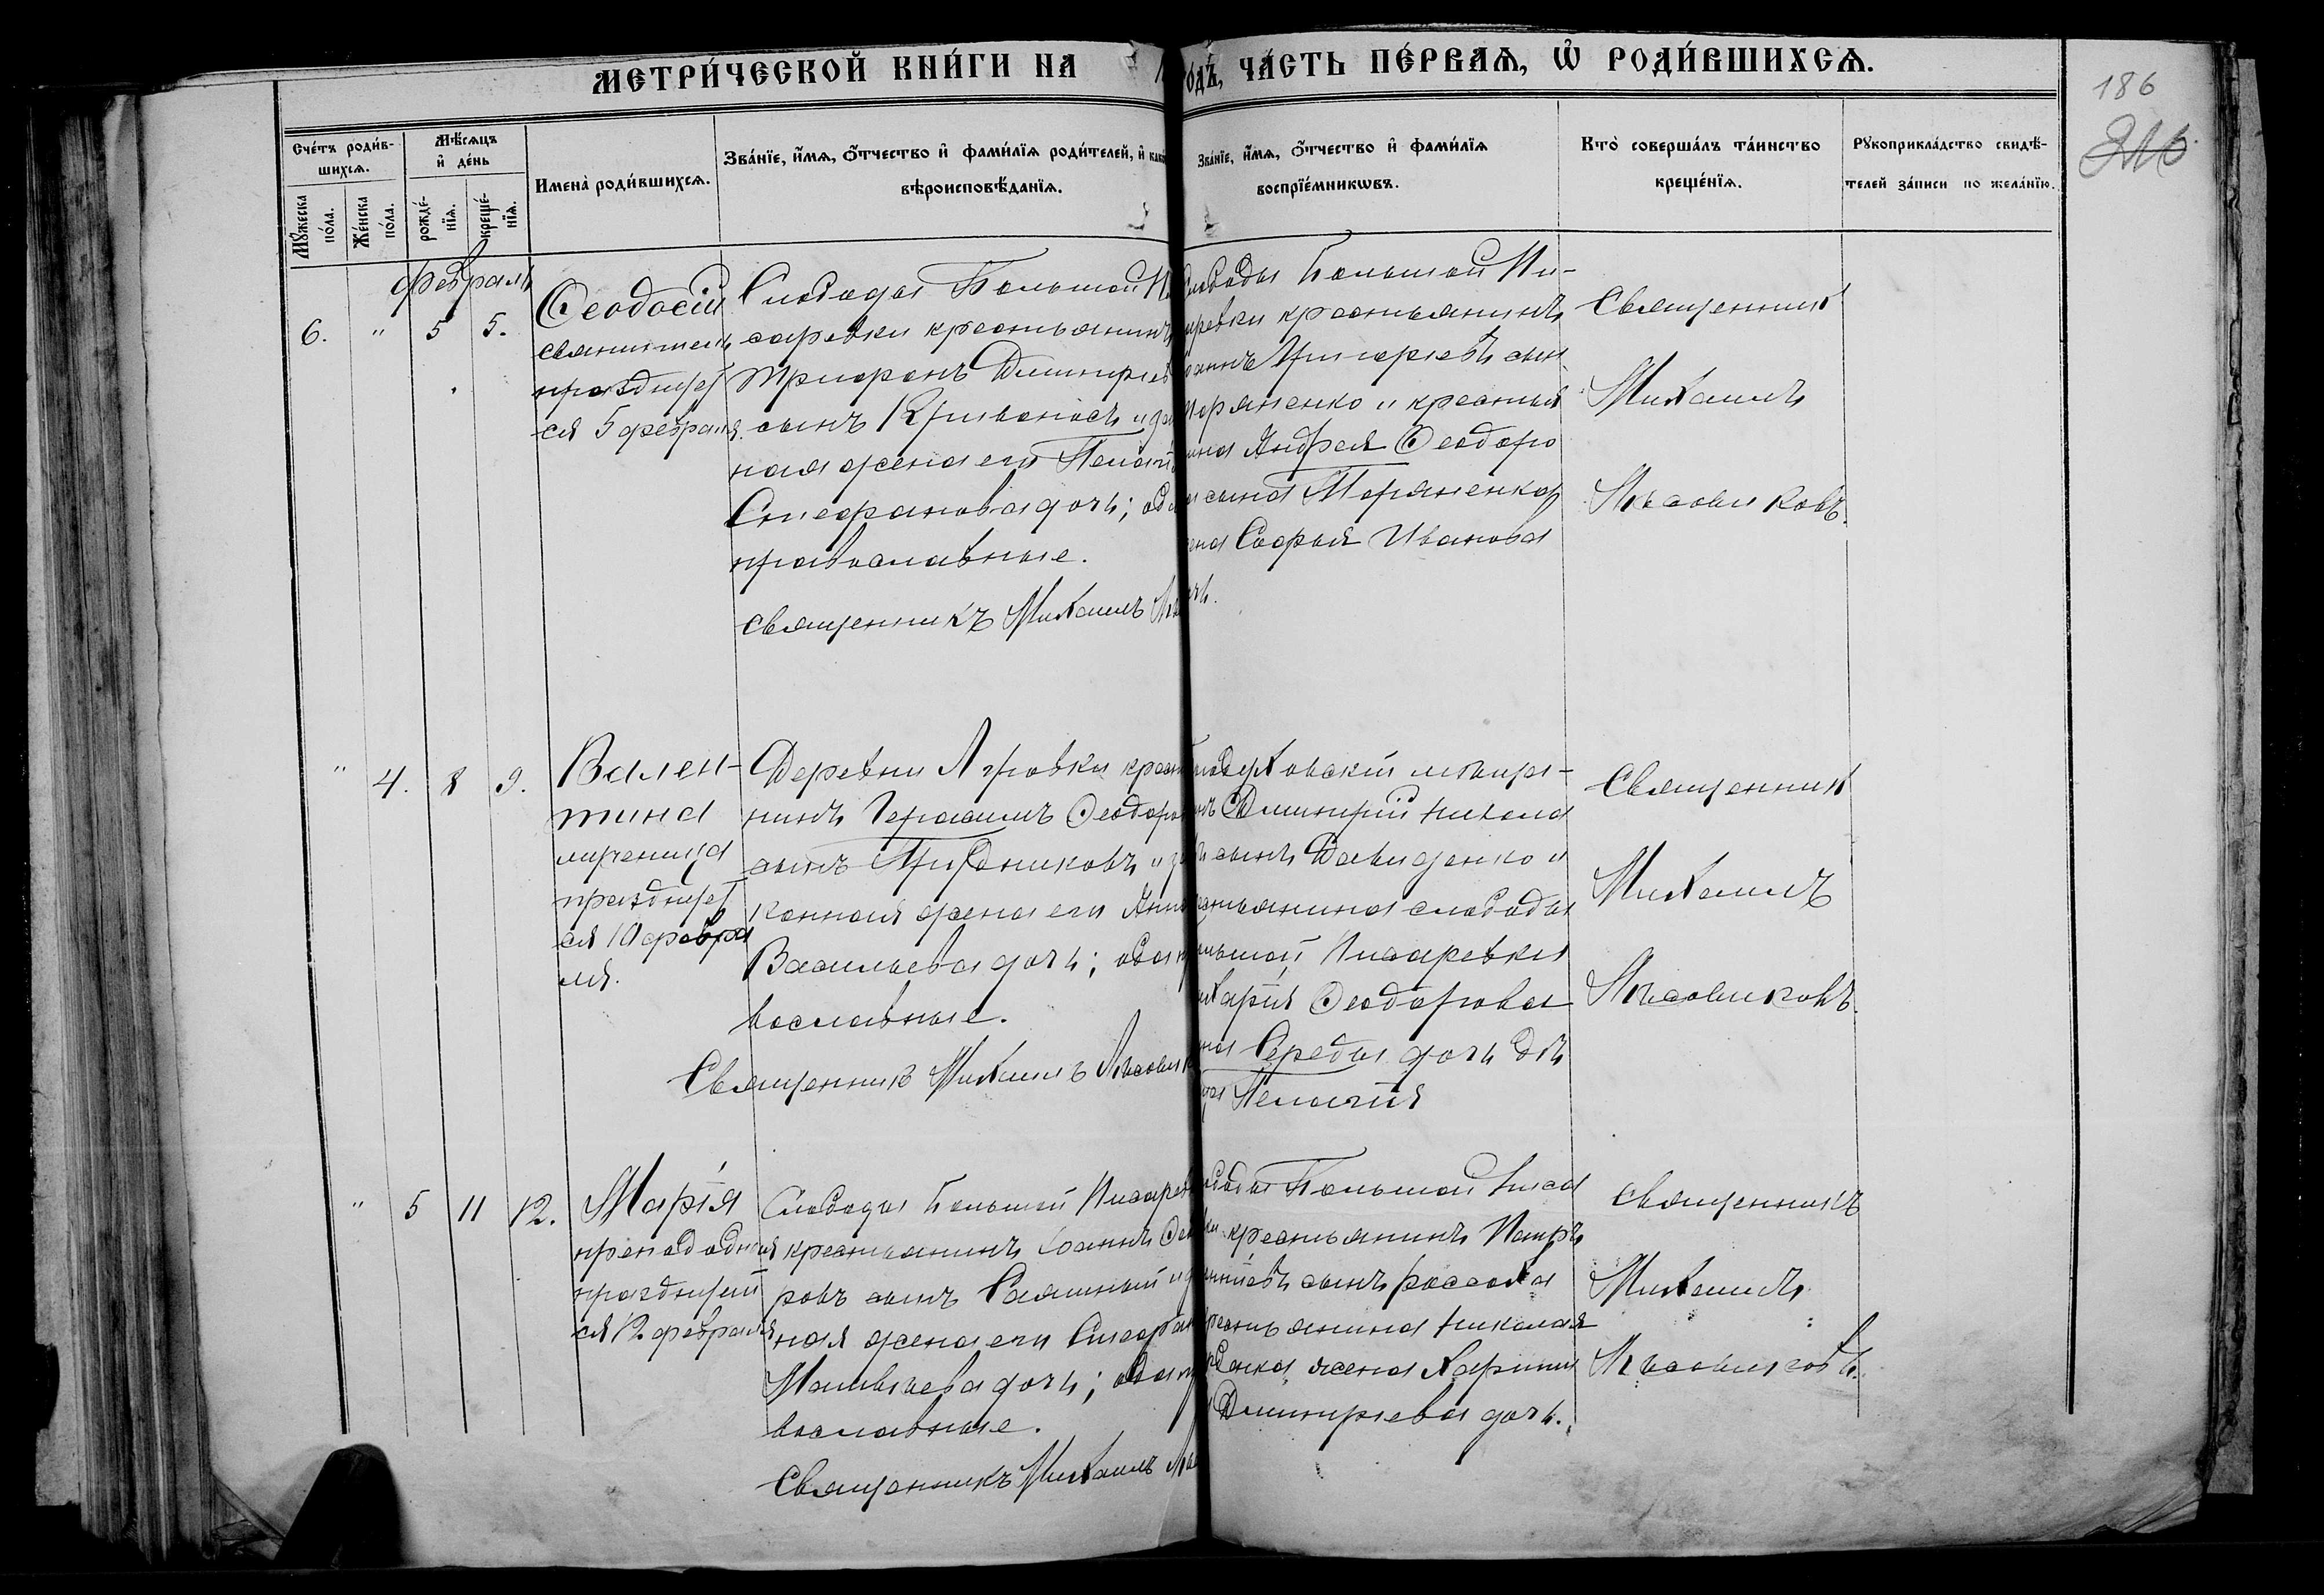 МЕТРИ́ЧЕСКОЙ КНИ́ГИ НА
ЧА́СТЬ ПЕ́РВАѦ, Ѡ РОДИ́ВШИХСѦ.
186
Сче́тъ роди́в-
шихсѧ.
Мꙋ́жеска
по́ла.
Же́нска
по́ла.
Мѣ́сѧцъ
и де́нь
рожде́-
нїѧ.
креще́-
нїѧ.
Имена̀ роди́вшихсѧ.
Зва́нїе, и́мѧ, ѻ́тчество и фами́лїѧ роди́телей, и
вѣроисповѣ́данїѧ.
Зва́нїе, и́мѧ, ѻ́тчество и фами́лїѧ
воспрїе́мникѡвъ.
Кто̀ соверша́лъ та́инство
креще́нїѧ.
Рꙋкоприкла́дство свидѣ́-
телей за́писи по жела́нїю.
февраль
6. " 5 5.
Ѳеодосій
святитель
празднует
ся 5 февраля.
Слободы Большой Пи
саревки крестьянинъ
Трифонъ Димитріев
сынъ Кривоносъ и
ная жена его Пелагія
Стефанова дочь;
православные.
священникъ Михаилъ
Слободы Большой Пи-
саревки крестьянинъ
Іоаннъ Григорьевъ сын
и крестья
нина Андрея Ѳеодоро
ва сына
жена Софья Иванова
дочь.
Священник
Михаилъ
Лѣсовиковъ.
" 4. 8 9.
Вален-
тина
мученица
празднует
ся 10 февра
ля.
Деревни крестья
нинъ Герасимъ Ѳеодоро
сынъ и за
конная жена его Анна
Васильева дочь; оба пра
вославные.
Священник Михаилъ Лѣсовик
мѣща-
нинъ Димитрій Никола
сынъ Давиденко и
крестьянина слободы
Большой Писаревки
Захарія Ѳеодорова
Середы дочь дѣ
вица Пелагія
Священник
Михаилъ
Лѣсовиковъ.
" 5 11 12.
Марія
преподобная
празднует
ся 12 февраля
Слободы Большой Писарев
крестьянинъ Іоаннъ Ѳео
ровъ сынъ и
ная жена его Стефан
Матвѣева дочь; оба пра
вославные.
Священникъ Михаилъ
Слободы Большой Писа
ревки крестьянинъ Петръ
сынъ
крестьянина Николая
жена
Димитріева дочь.
священникъ
Михаилъ
Лѣсовиковъ.